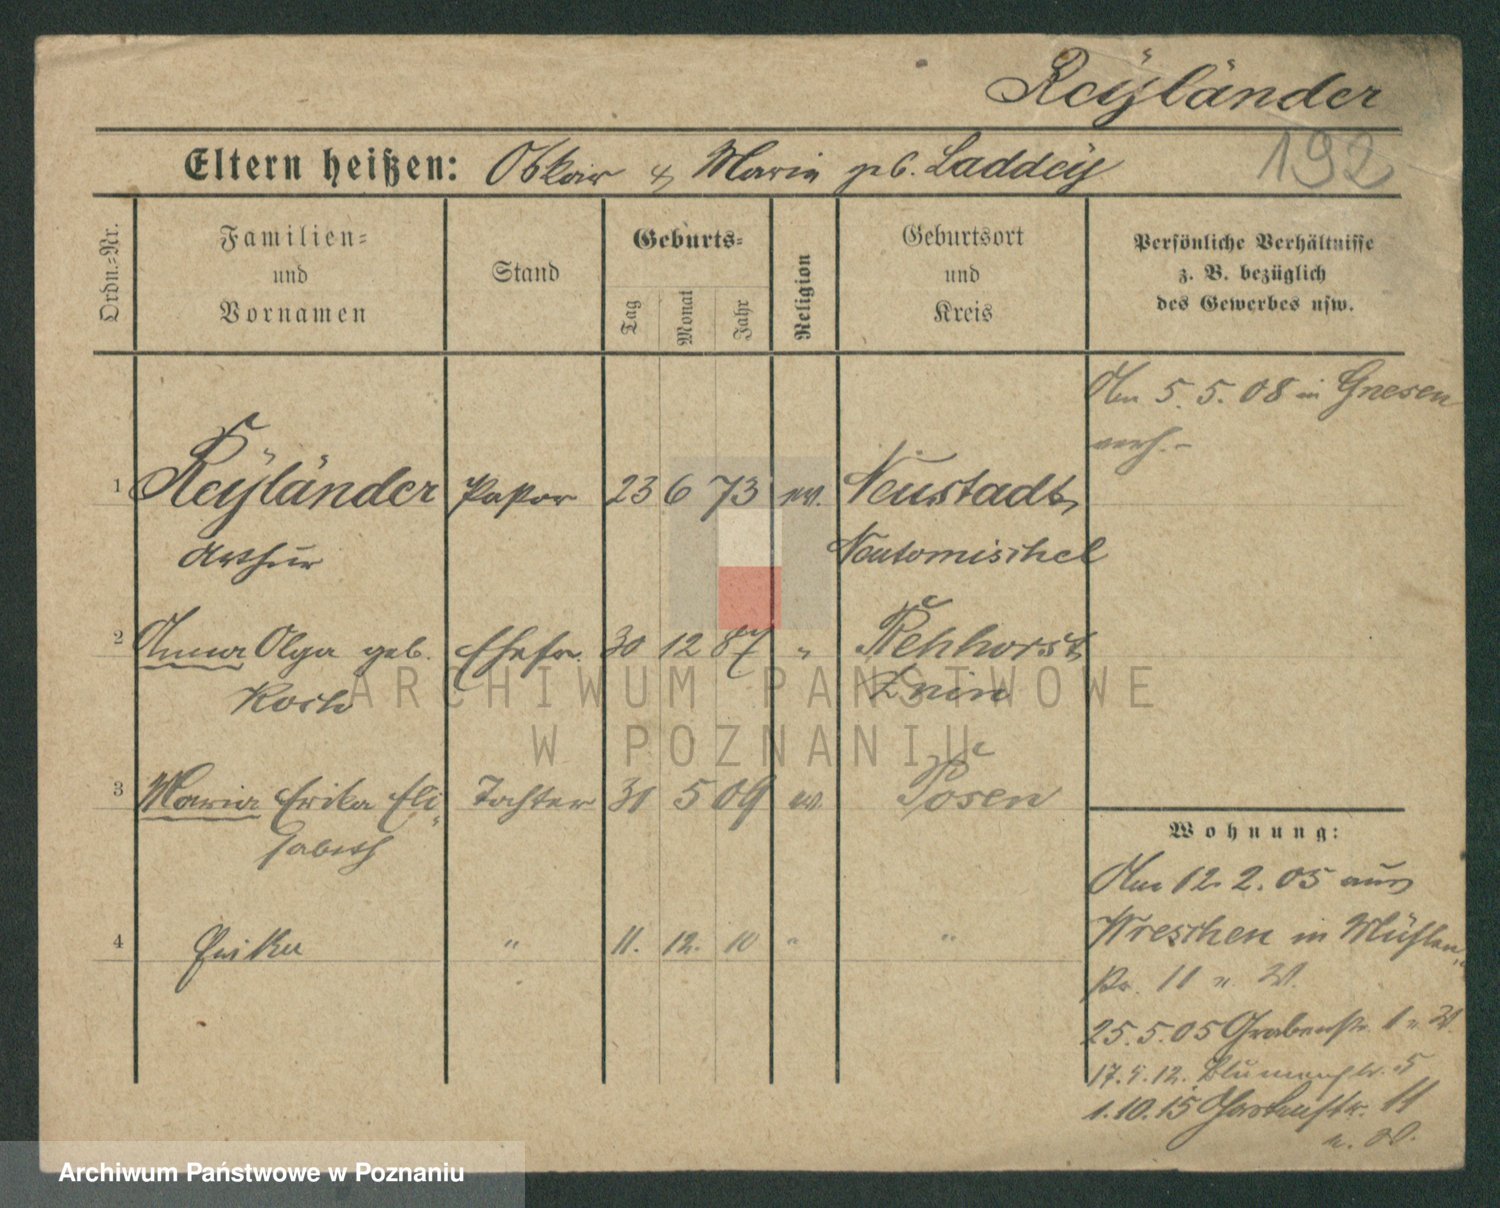 Reÿländer
192
Eltern heißen: Oskar & Maria geb. Laddeÿ
Ordn.-Nr.
Familien-
und
Vornamen
Stand
Geburts-
Tag
Monat
Jahr
Religion
Geburtsort
und
Kreis
Persönliche Verhältnisse
z. B. bezüglich
des Gewerbes usw.
Am 5.5.08 in Gnesen
verh. –
1 Reÿländer Pastor 23 6 73 ev. Neustadt,
Arthur Neutomischel
2 Anna Olga geb. Ehefr. 30 12 87 " Rehhorst,
Znin
3 Maria Erika Eli- Tochter 31 5 09 ev. Posen
sabeth
4 Erika " 11. 12. 10 " "
Wohnung:
Am 12.2.05 aus
Wreschen in Mühlen-
str. 11
25.5.05 Grabenstr. 1
17.5.12. Blumenstr. 5
1.10.15 Gartenstr. 11
ARCHIWUM PAŃSTWOWE
W POZNANIU
Archiwum Państwowe w Poznaniu